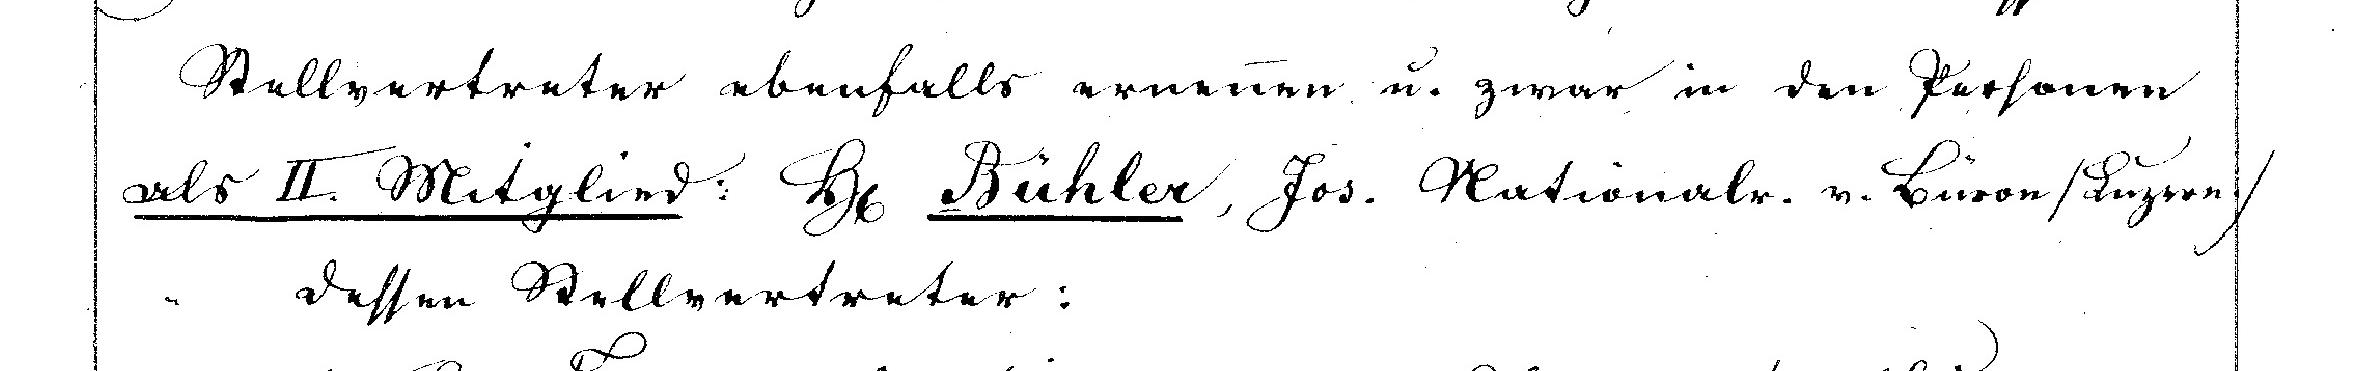 Stellvertreter ebenfalls ernen̅en u. zwar in den Personen
als II. Mitglied: Hr. Bühler, Jos. Nationalr. v. Büron /Luzern./
" dessen Stellvertreter: